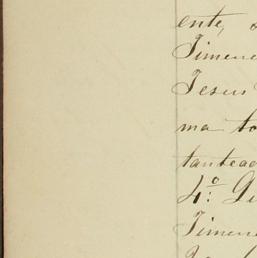 ente,
Timen
Jesus
ma to
tantead
4º
Timen